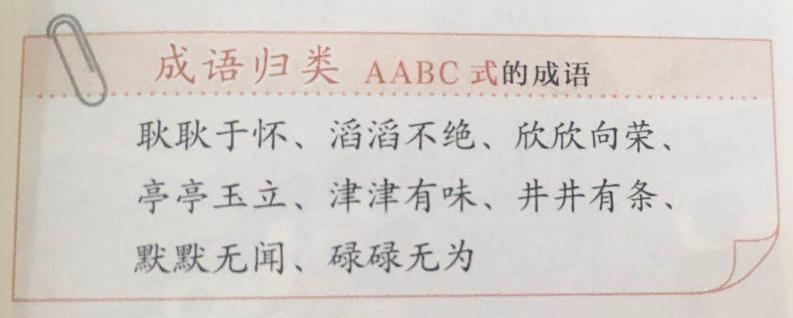 成语归类 AABC 式的成语
耿耿于怀、滔滔不绝、欣欣向荣、
亭亭玉立、津津有味、井井有条、
默默无闻、碌碌无为